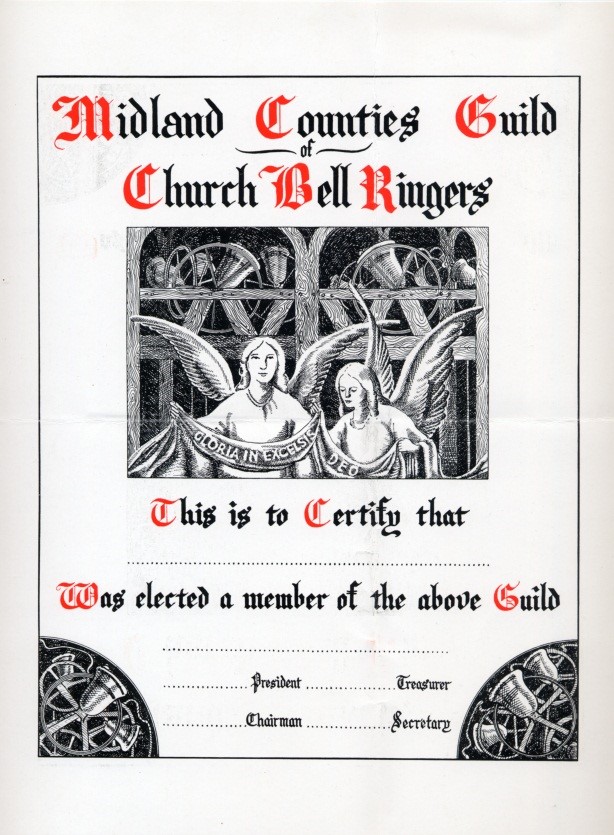 Midland Counties Guild
of
Church Bell Ringers
GLORIA IN EXCELSIS
DEO
This is to Certify that
Was elected a member of the above Guild
President Treasurer
Chairman Secretary